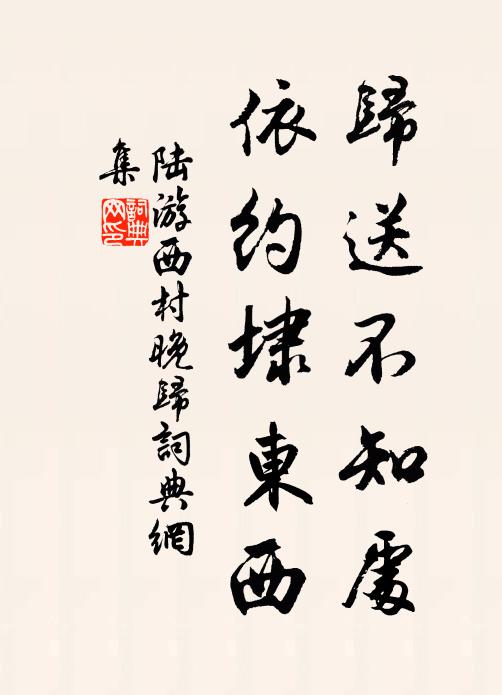 歸送不知處
依約埭東西
陸游西村晚歸詞典網
集
詞典
网印